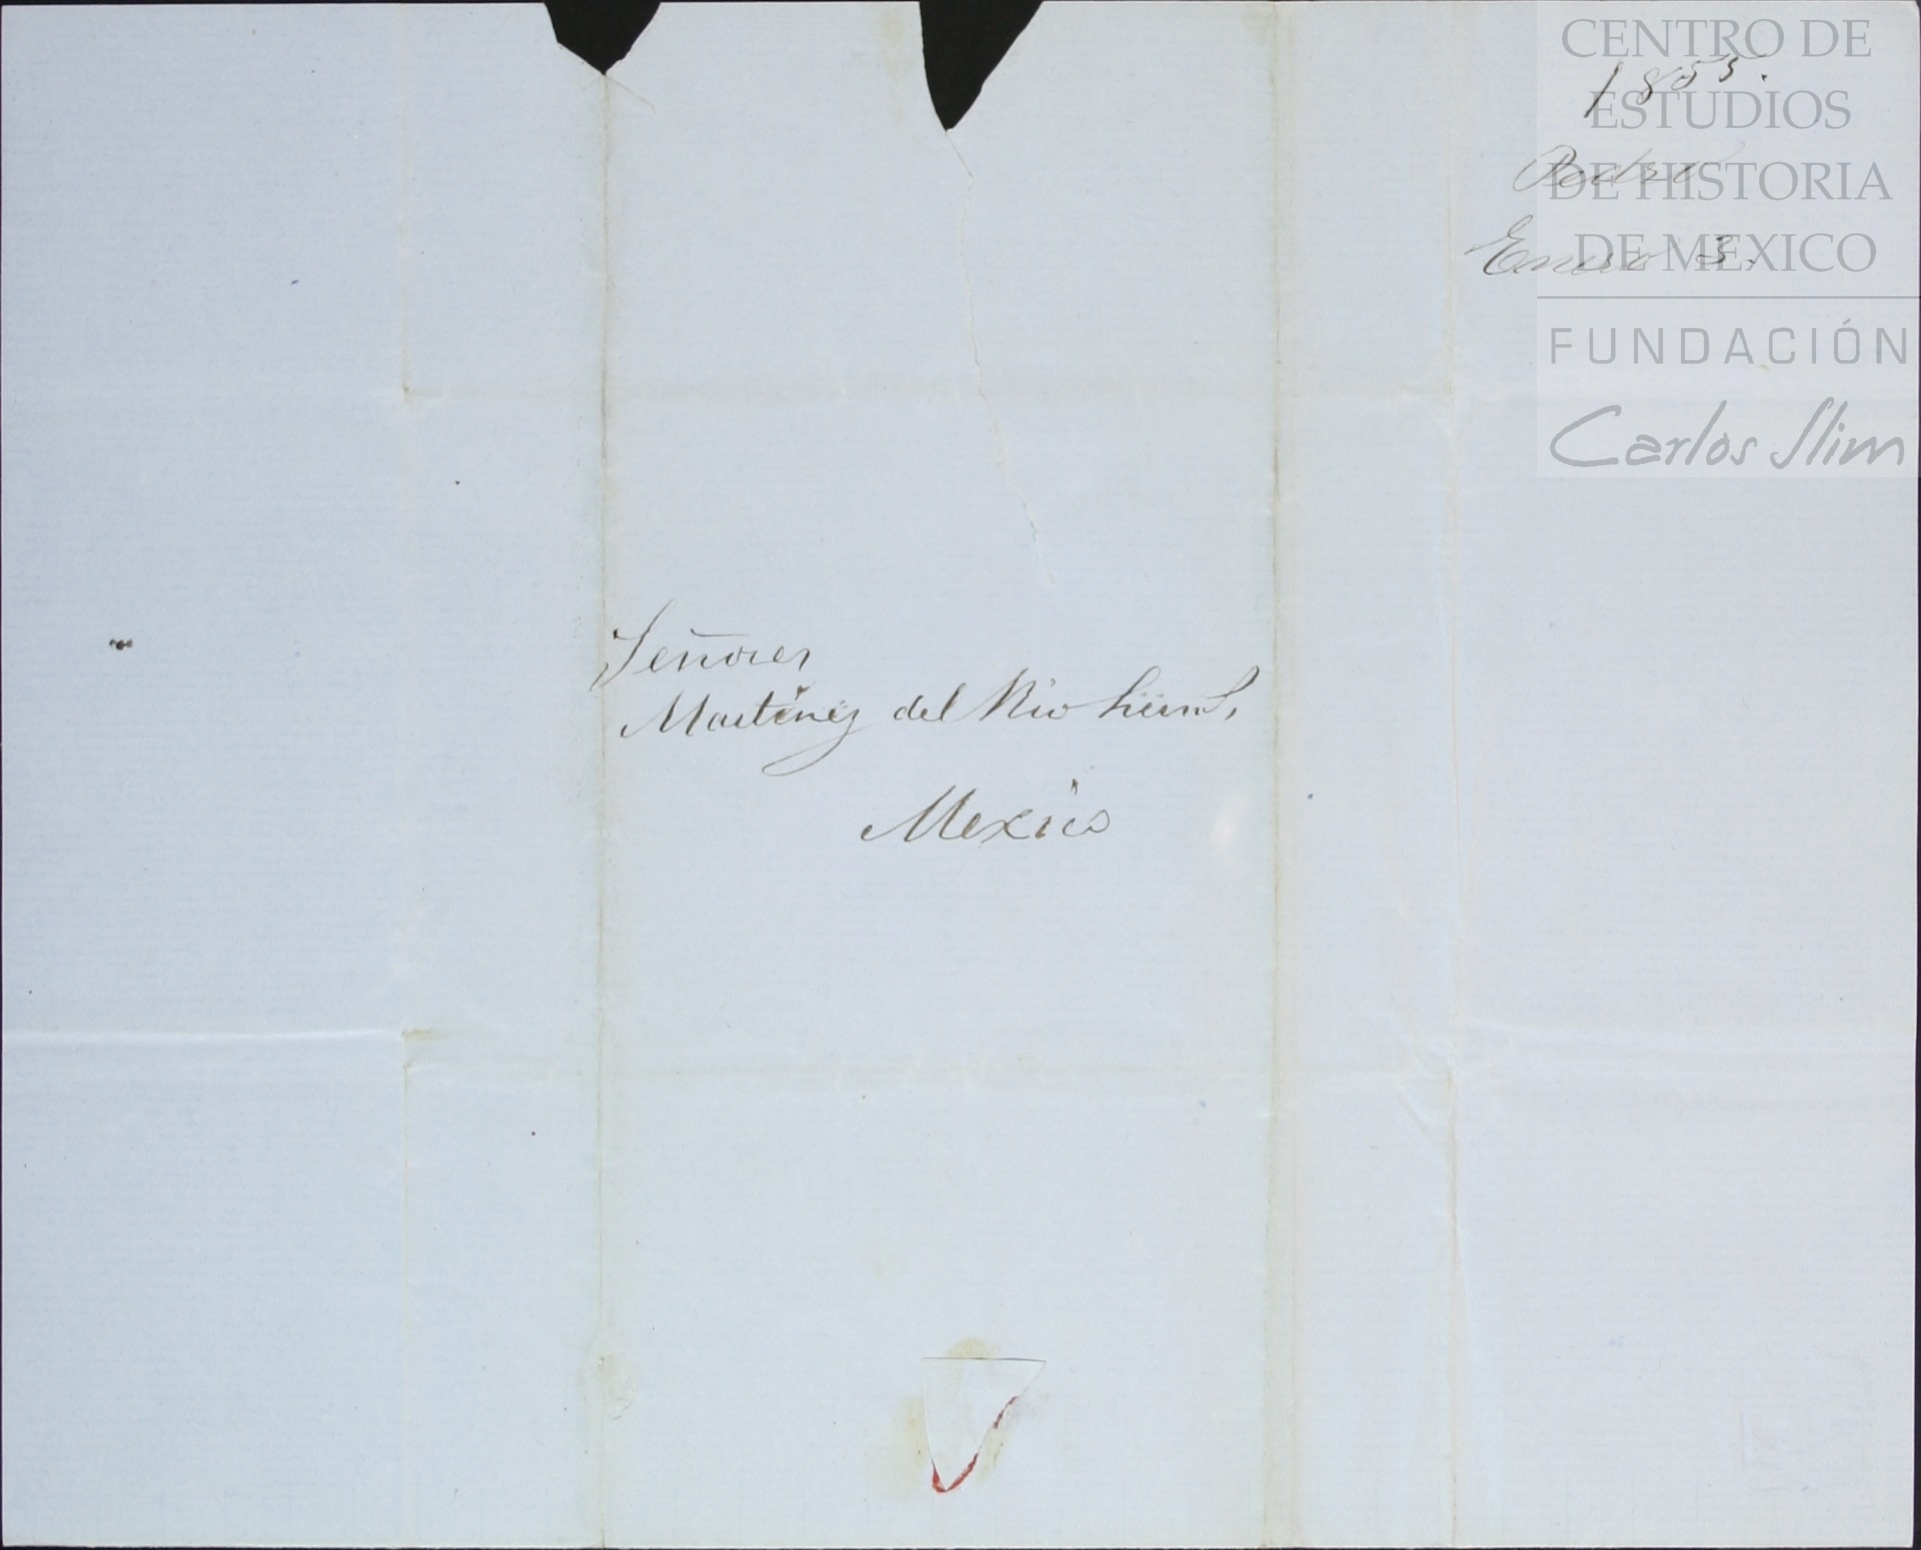 CENTRO DE
ESTUDIOS
DE HISTORIA
DE MEXICO
FUNDACIÓN
Carlos Slim
1855.
Enero 3.
Señores
Martinez del Rio
Mexico